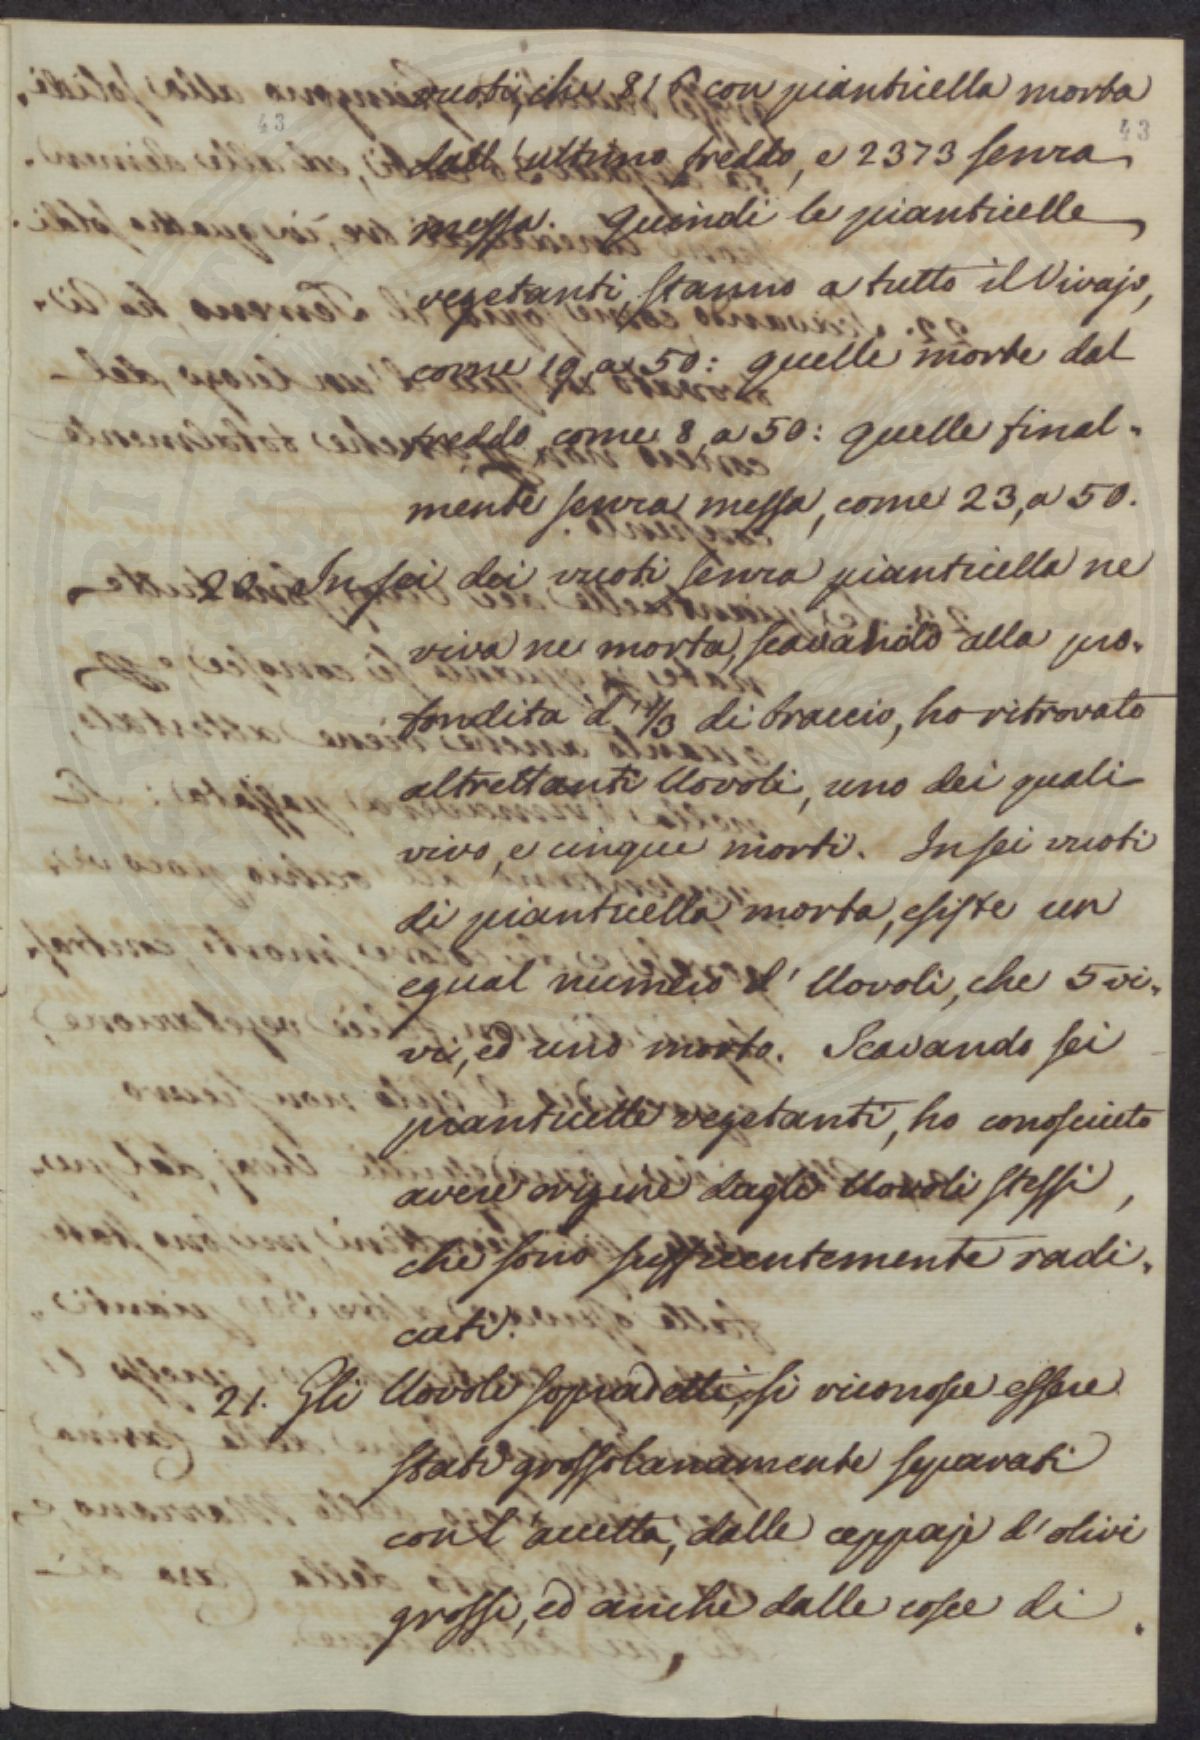 43
vuoti, che 816 con pianticella morta
dall'ultimo freddo, e 2373 senza
messa. Quindi le pianticelle
vegetanti, stanno a tutto il Vivajo,
come 19, a 50: quelle morte dal
freddo, come 8, a 50: quelle final-
mente senza messa, come 23, a 50.
20. In sei dei vuoti senza pianticella ne
viva ne morta, scavando alla pro-
fondita d' 1/3 di braccio, ho ritrovato
altrettanti Uovoli, uno dei quali
vivo, e cinque morti. In sei vuoti
di pianticella morta, esiste un
egual numero d'Uovoli, che 5 vi-
vi, ed uno morto. Scavando sei
pianticelle vegetanti, ho conosciuto
avere origine dagli Uovoli stessi,
che sono sufficentemente radi-
cati.
21. Gli Uovoli sopradetti, si riconosce essere
stati grossolanamente separati
con l'accetta, dalle ceppaje d'olivi
grossi, ed anche dalle cosce di